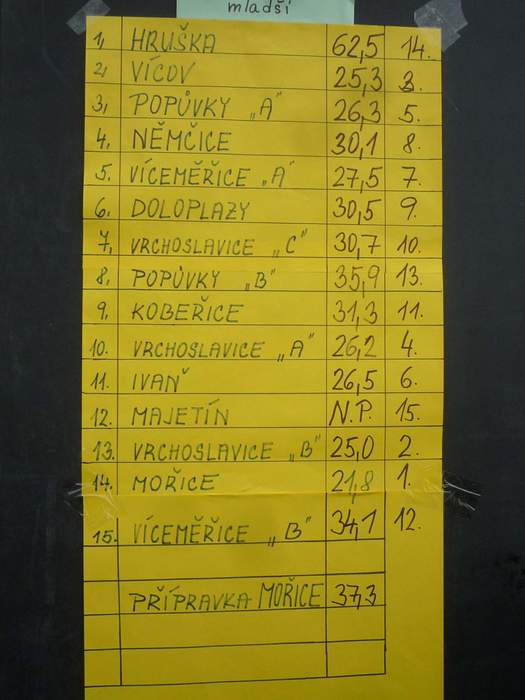 mladší
1, HRUŠKA 62,5 14.
2, VÍCOV 25,3 3.
3, POPŮVKY „A" 26,3 5.
4. NĚMČICE 30,1 8.
5. VÍCEMĚŘICE „A" 27,5 7.
6. DOLOPLAZY 30,5 9.
7, VRCHOSLAVICE „C" 30,7 10.
8, POPŮVKY „B" 35,9 13.
9, KOBEŘICE 31,3 11.
10. VRCHOSLAVICE „A" 26,2 4.
11. IVAŇ 26,5 6.
12. MAJETÍN N.P. 15.
13. VRCHOSLAVICE „B" 25,0 2.
14. MOŘICE 21,8 1.
15. VÍCEMĚŘICE „B" 34,1 12.
PŘÍPRAVKA MOŘICE 37,3